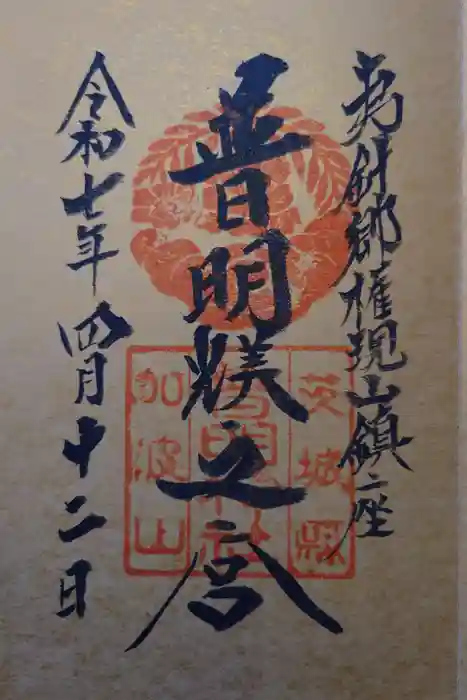 夷針郷権現山鎮座
普明煤之宮
令和七年四月十二日
茨城縣
加波山